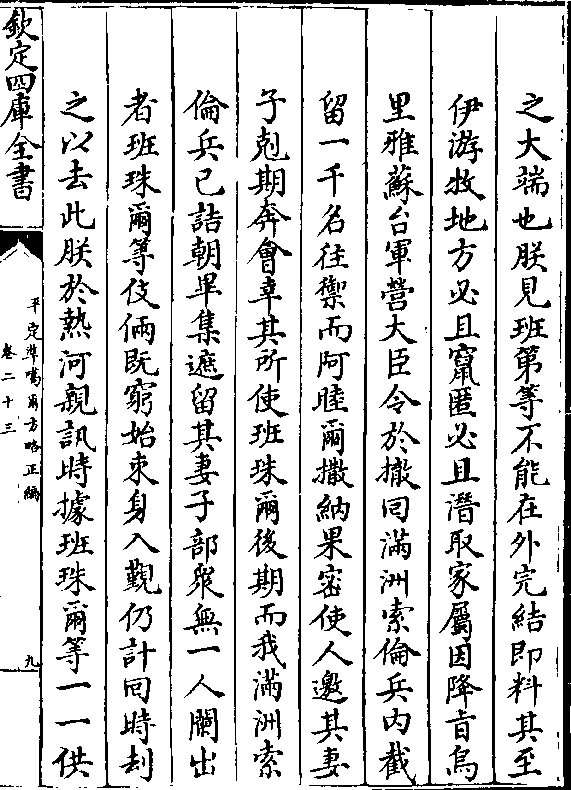 之大端也朕見班第等不能在外完結即料其至
伊游牧地方必且竄匿必且潛取家屬因降旨烏
里雅蘇台軍營大臣令於撤回滿洲索倫兵内截
留一千名往禦而阿睦爾撒納果密使人邀其妻
子剋期奔會幸其所使班珠爾後期而我滿洲索
倫兵已詰朝畢集遮留其妻子部衆無一人闌出
者班珠爾等伎倆既窮始束身入覲仍計回時刦
之以去此朕於熱河親訊時據班珠爾等一一供
欽定四庫全書
平定準噶爾方略正編
卷二十三
九